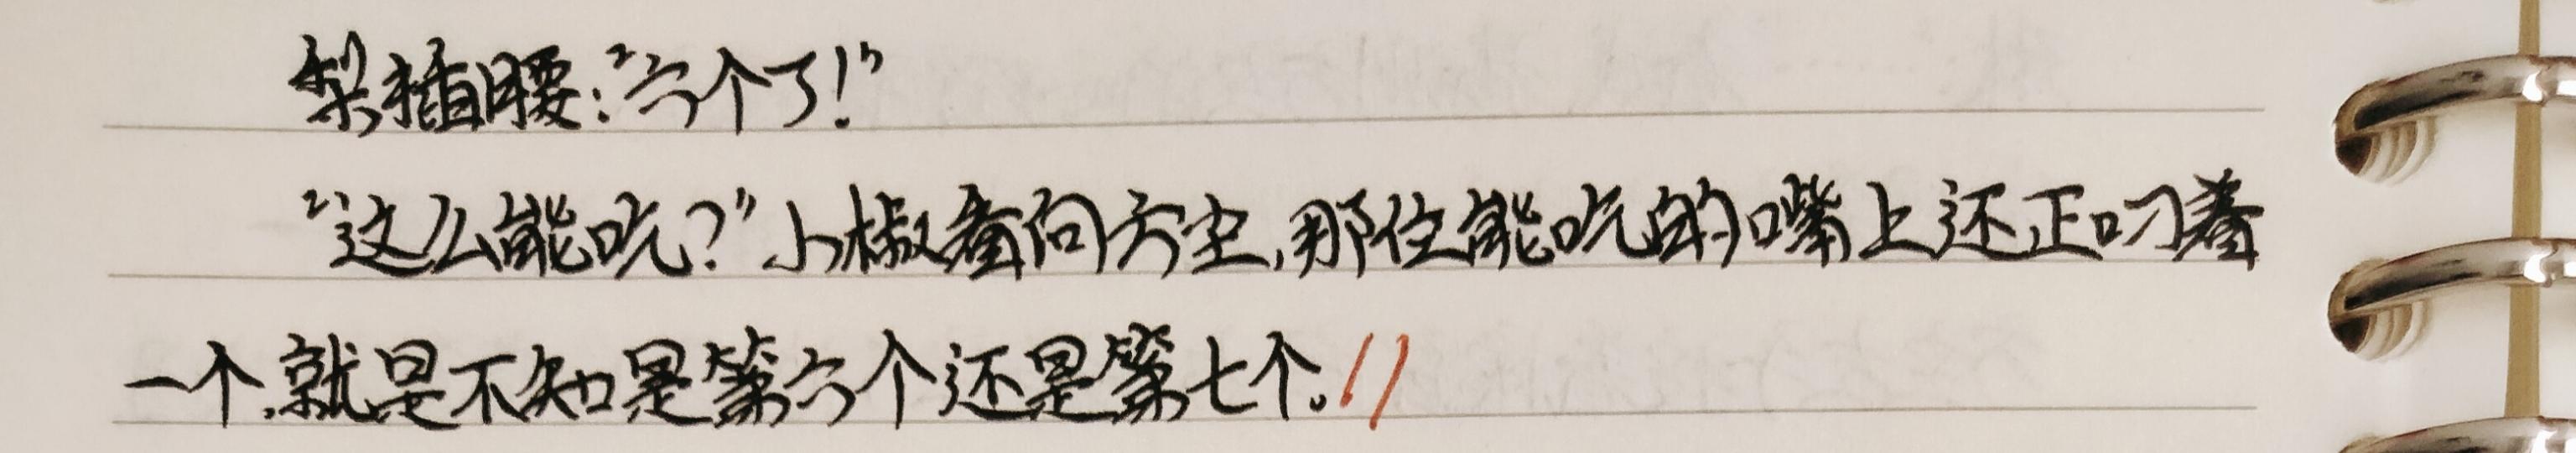 梨插腰：“六个了！”
“这么能吃？”小椒看向方尘，那位能吃的嘴上还正叼着
一个，就是不知是第六个还是第七个。//